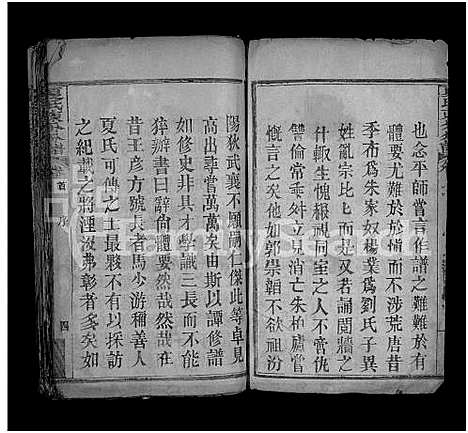 也念平師嘗言作譜之難難於有
體要尤難於於愼而不涉荒唐昔
季布爲朱家奴楊業爲劉氏子異
姓亂宗比比而是又若誦鬩牆之
什輒生愧報視同室之人不啻仇
讐倫常乖舛立見消亡朱柏廬嘗
切言之他如郭崇韜不欲祖汾
陽狄武襄不願嗣仁傑此等卓見
高出尋常萬萬矣由斯以譚修譜
如修史非具才學識三長而不能
猝辦書曰辭尚體要然哉然哉
昔王彦方號長者馬少游稱善人
夏氏可傳之士最夥不有以採訪
之紀載之將湮汶弗彰者多矣如
首
序
四